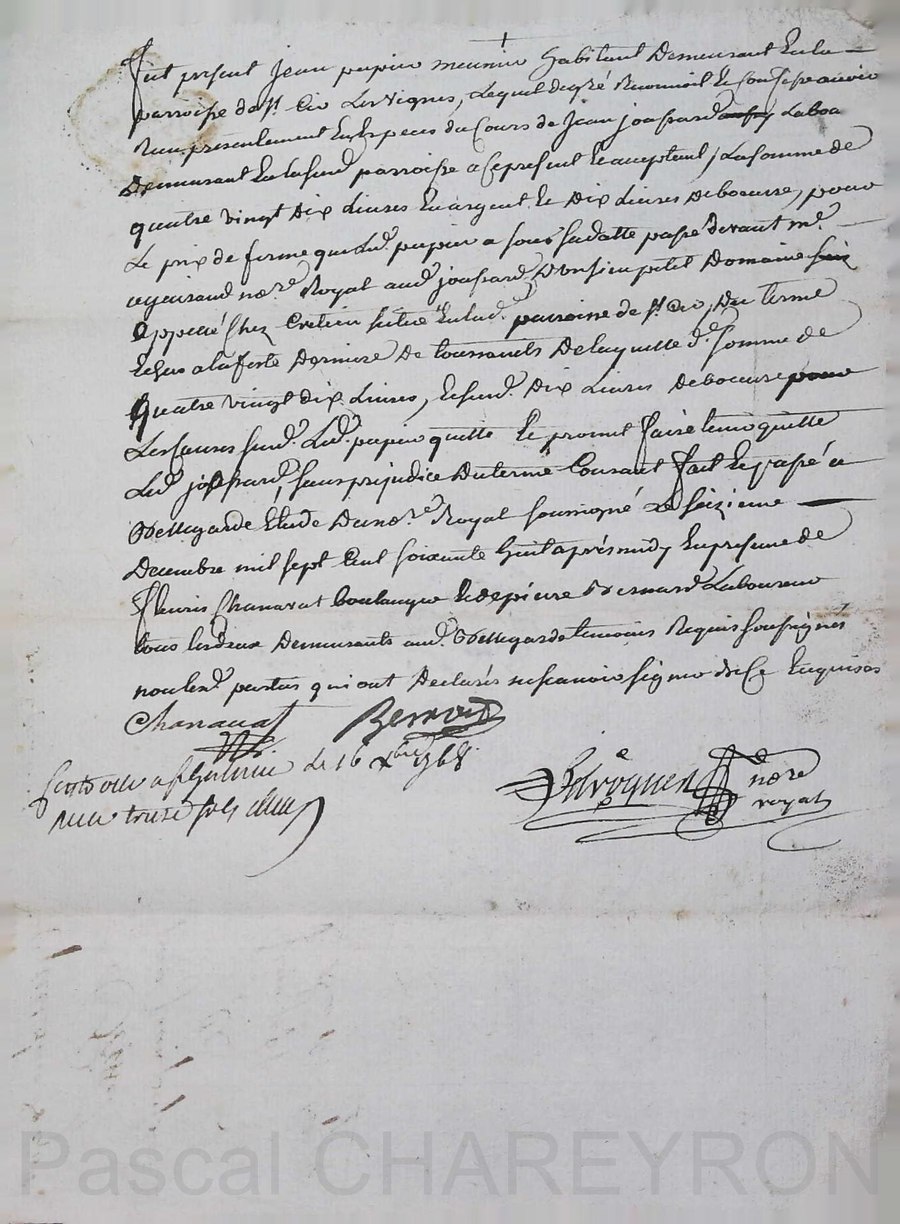 fut present jean pupier meunier habitant demeurant en la
parroisse de st Cir les vignes, lequel de gré reconnoit et confesse avoir
receu presentement en especes du Cours de jean joussard labou
demeurant en la susd. parroisse a ce present et acceptant, la somme de
quatre vingt dix livres en argent et dix livres de beeurre, pour
le prix de ferme que led. pupier a sous sa datte passé devant me
royal aud. joussard d'un sien petit domaine
appellé chez Cretien situé en lad. parroisse de st Cir, du terme
echeu a la feste derniere de toussaints de laquelle d. somme de
quatre vingt dix livres, et susd. dix livres de beeurre pour
les causes susd. led. pupier quitte et promet faire tenir quitte
led. joussard, sans prejudice du terme Courant fait et passé a
Bellegarde Etude du no.re Royal soussigné le seizieme
Decembre mil sept Cent soixante huit après midy en presence de
fleuris Chanavat boulanger et de pierre Bernard laboureur
tous les deux demeurants aud. Bellegarde temoins requis soussignés
non les d. parties qui ont declarés ne scavoir signer de ce enquises
Chanavat
Bernard
no.re
royal
le 16 xbre 1768.
receu treize sols
Pascal CHAREYRON